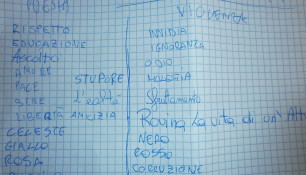 POESIA
RISPETTO
EDUCAZIONE
Ascolto
AMORE
PACE
STUPORE
BENE
LIBERTÀ AMICIZIA
CELESTE
GIALLO
ROSA
VIOLENZA
INVIDIA
IGNORANZA
ODIO
Sfruttamento
Rovina la vita di un' Alt
NERO
ROSSO
CORRUZIONE